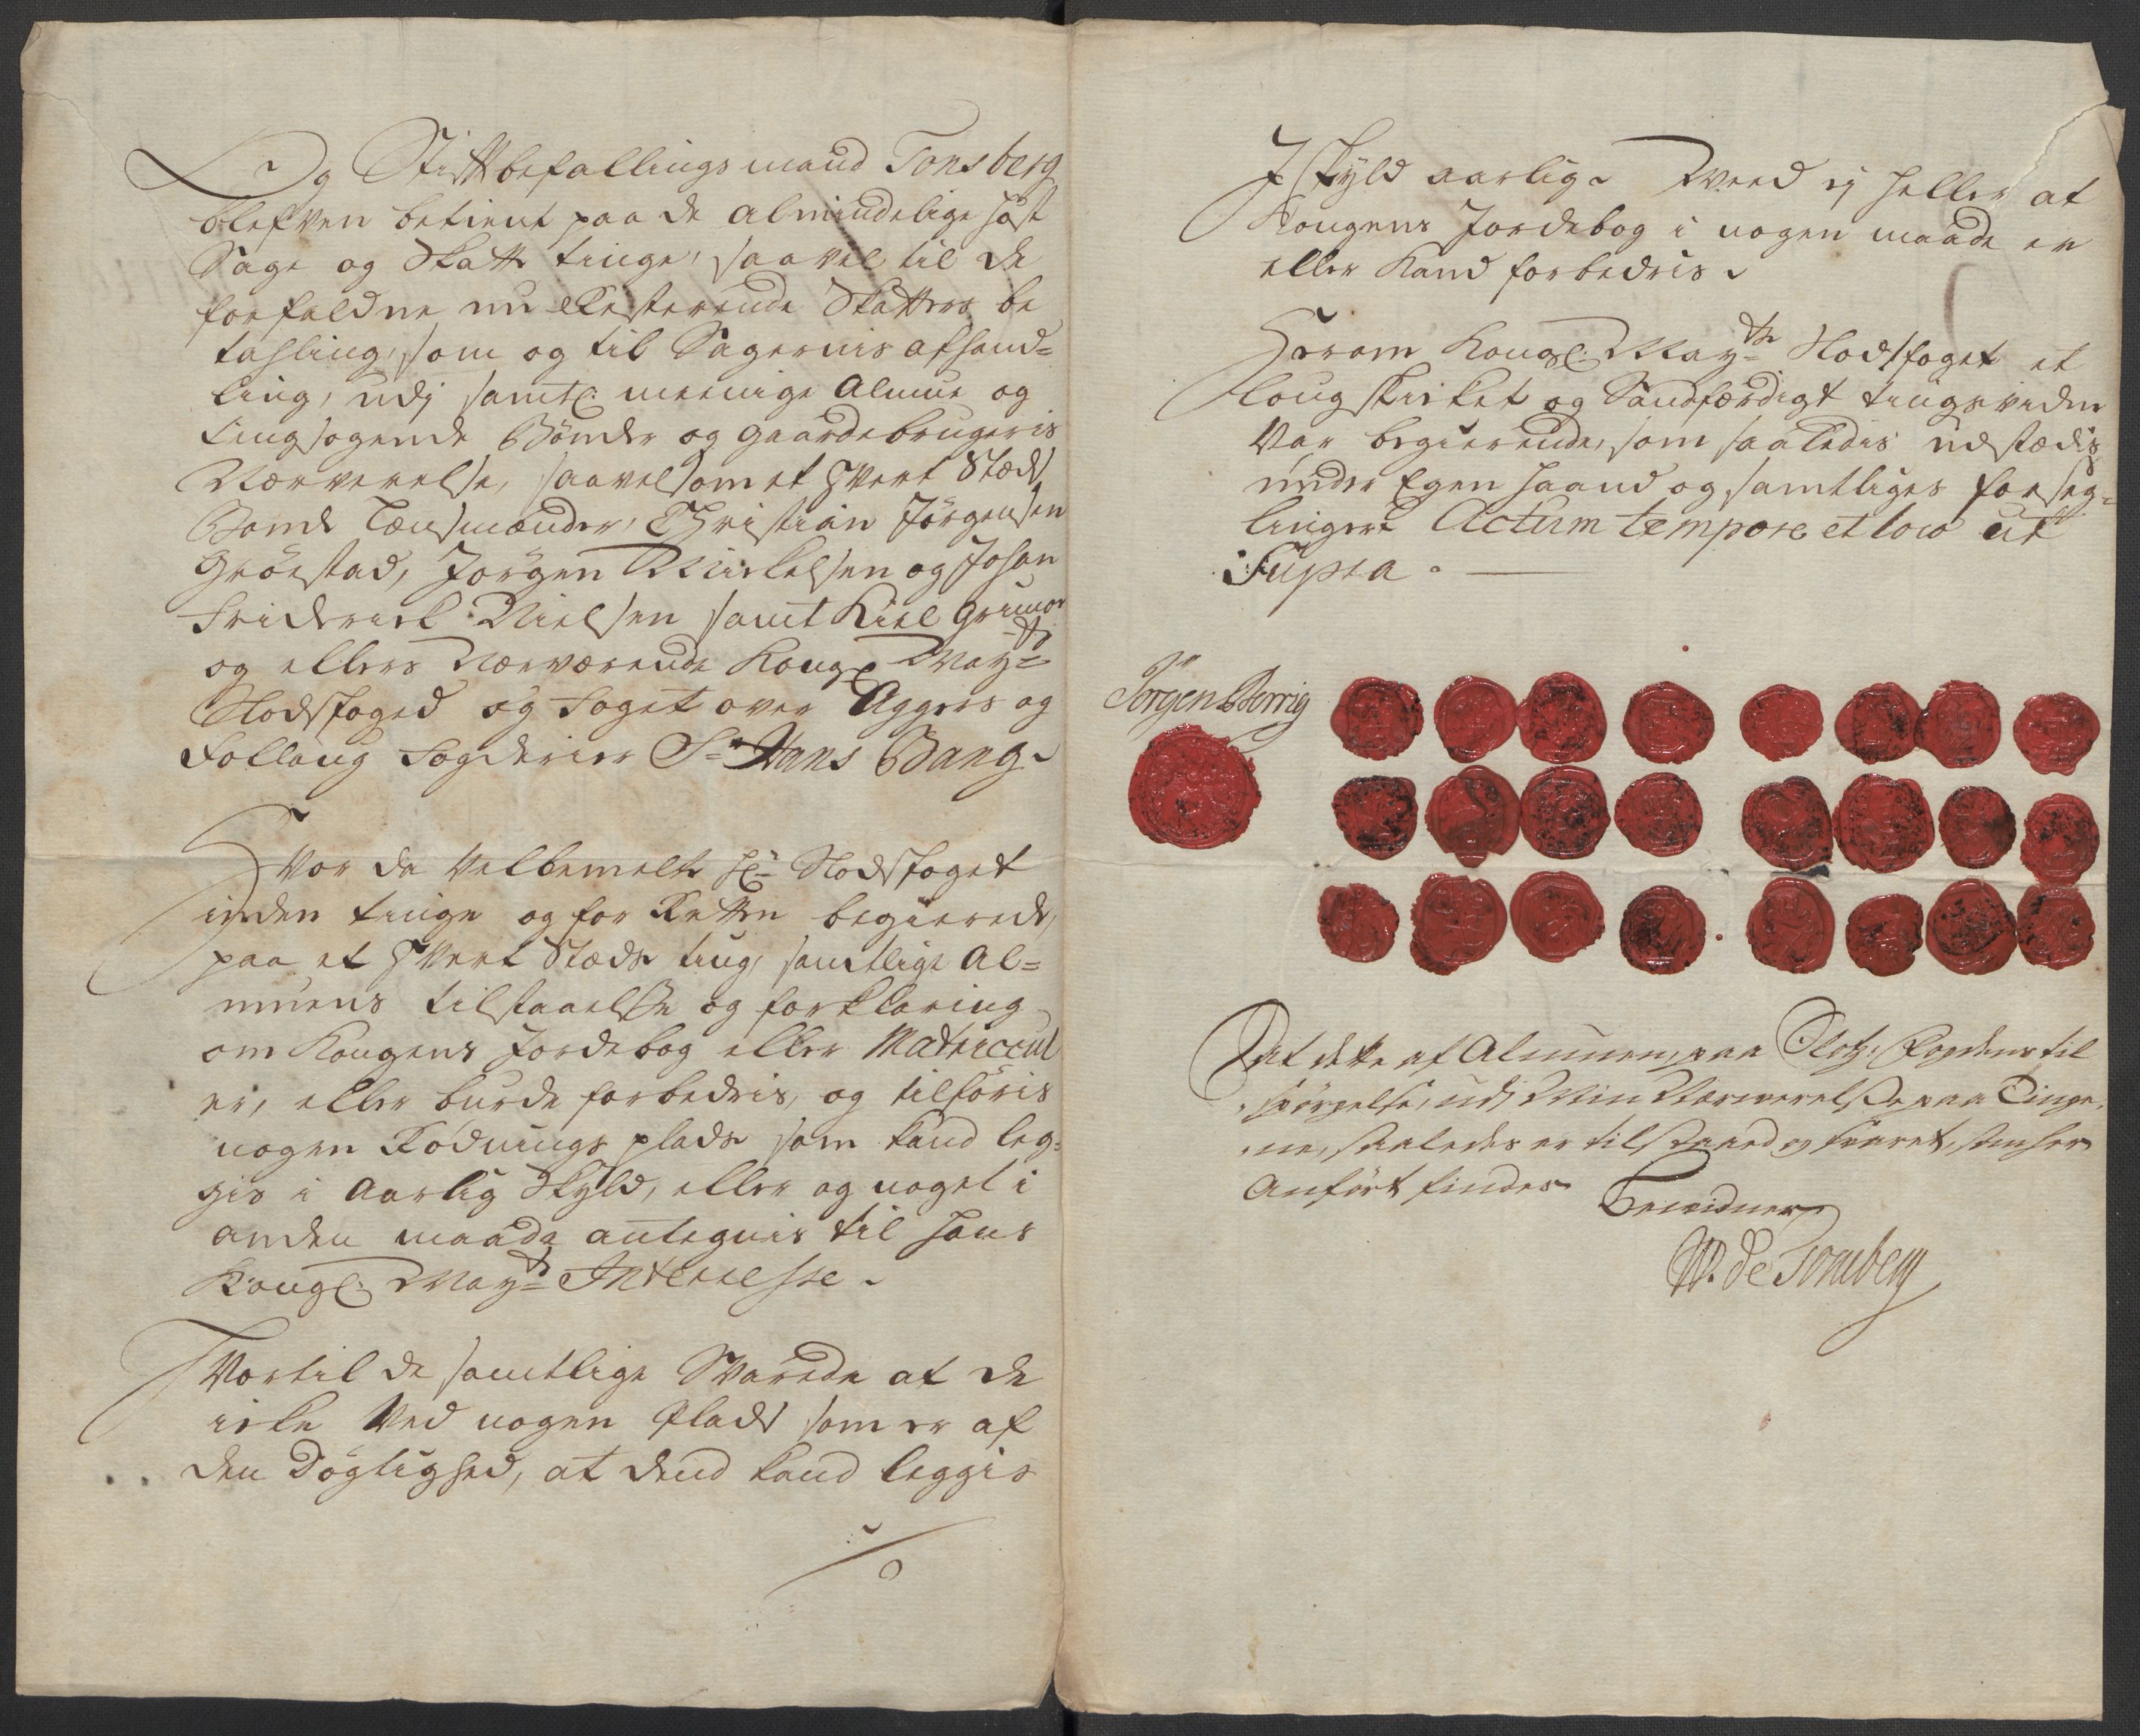 Og Stiftbefallingsmand Tonsberg
blefven betient paa de almindelige høst
Sage og Skatte tinge, saavel til de
forfaldne nu Resterende Skatters be
tahling, som og til Sagernis afhand=
ling, udj samtl: meenige Almue og
tingsøgende Bønder og gaardebrugeris
Nærverelse, saavelsom et hvert Stæds
Bonde Lensmænder, Christian Jörgensen
Grøestad, Jörgen Mickelsen og Johan
Friderick Nielsen samt Kiel Grimør
og ellers Nærværende Kongl Mayts
Slodsfoged og Foget over Aggers og
Folloug Fogderier Sr Hans Bang
Hvor da Velbemelte Hr Slodsfoget
inden tinge og for Retten begierede,
paa et hvert Stæds ting, samtlige Al=
muens tilstaaelsse og forklaring
om Kongens Jordebog eller Matricul
er, eller burde forbedris, og tilføris
nogen Rödnings plads som kand leg=
gis i Aarlig Skyld, eller og noget i
anden maade antegnis til hans
Kongl: Mayts Interesse.
Hvortil de samtlige Svarede at de
icke Ved nogen Plads som er af
den Døgtighed, at dend kand leggis
I Skyld aarlig. Weed ej heller at
Kongens Jordebog i nogen maade er
eller kand forbedris.
Herom Kongl: Mayts Slodsfoget et
Lougskicket og Sandfærdigt tingsvidne
Var begierende, som saaledis udstædis
under Egen haand og samtliges forseg=
linger. Actum tempore et loco ut
Supra.
Jörgen Borrig
At dette af Almuen, paa Slotz Fogdens til
spørgelse, udj Min Nærwerelsse paa Tinge
ne, saaledes er tilstaaed og svaret, som her
Anført findes
Bewidner
W. de Tonsberg